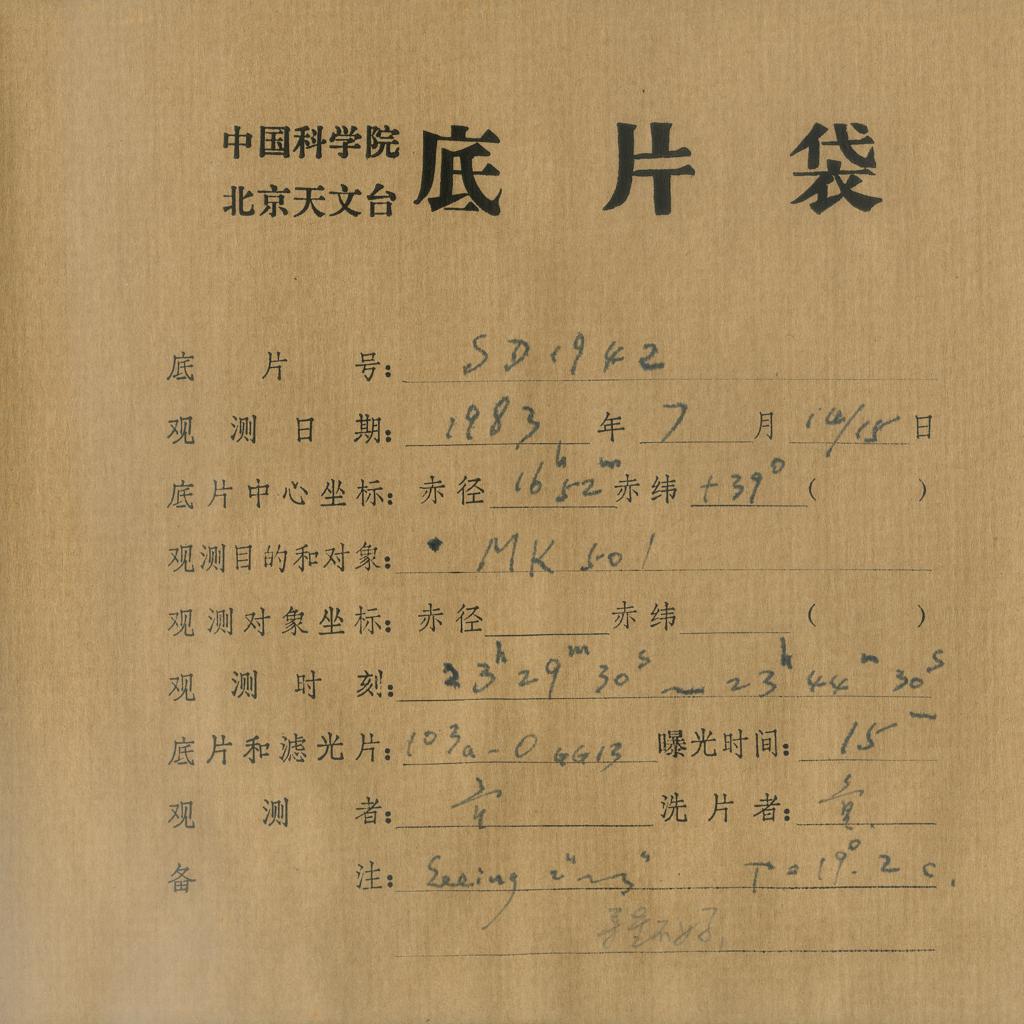 中国科学院
北京天文台
底片袋
底片号: SD1942
观测日期: 1983年7月14/15日
底片中心坐标: 赤径 16h52m 赤纬 +39° ( )
观测目的和对象: MK 501
观测对象坐标: 赤径 赤纬 ( )
观测时刻: 23h29m30s ~ 23h44m30s
底片和滤光片: 103a-O GG13 曝光时间: 15m
观测者: 洗片者:
备注: Seeing 2"~3" T=19°.2 C.
不好